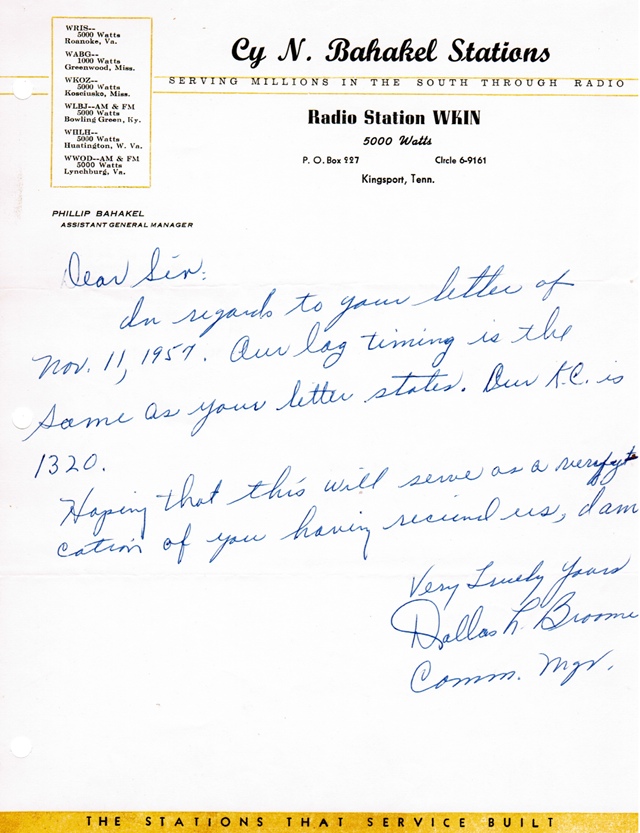 WRIS--
5000 Watts
Roanoke, Va.
WABG--
1000 Watts
Greenwood, Miss.
WKOZ--
5000 Watts
Kosciusko, Miss.
WLBJ--AM & FM
5000 Watts
Bowling Green, Ky.
WHLH--
5000 Watts
Huntington, W. Va.
WWOD--AM & FM
5000 Watts
Lynchburg, Va.
Cy N. Bahakel Stations
SERVING MILLIONS IN THE SOUTH THROUGH RADIO
Radio Station WKIN
5000 Watts
P. O. Box 227 CIrcle 6-9161
Kingsport, Tenn.
PHILLIP BAHAKEL
ASSISTANT GENERAL MANAGER
Dear Sir:
In regards to your letter of
Nov. 11, 1957. Our log timing is the
same as your letter states. Our K.C. is
1320.
Hoping that this will serve as a
cation of you having us, I am
Very Truely Yours
Dallas L. Broome
Comm. Mgr.
THE STATIONS THAT SERVICE BUILT